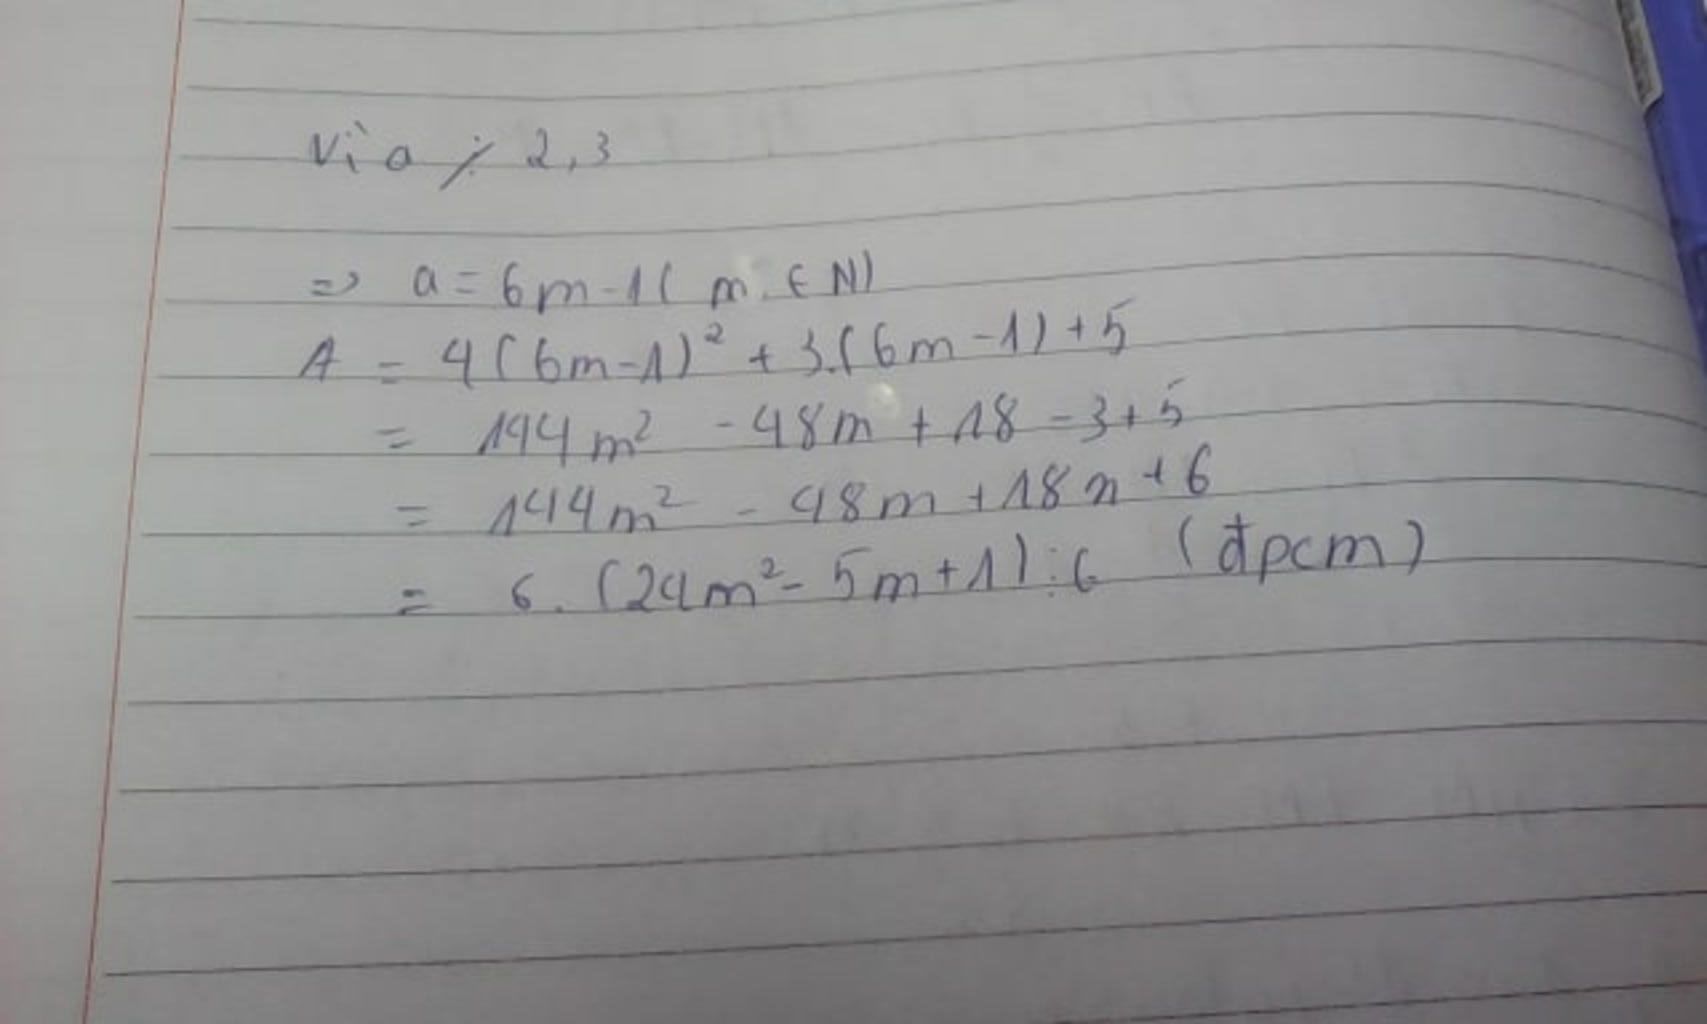 Vì a ⋮̸ 2,3
=> a = 6m-1( m ∈ N)
A = 4(6m-1)² + 3.(6m-1)+5
= 144m² -48m +18 -3+5
= 144m² - 48m +18n +6
= 6.(24m²- 5m+1)⋮6 (đpcm)